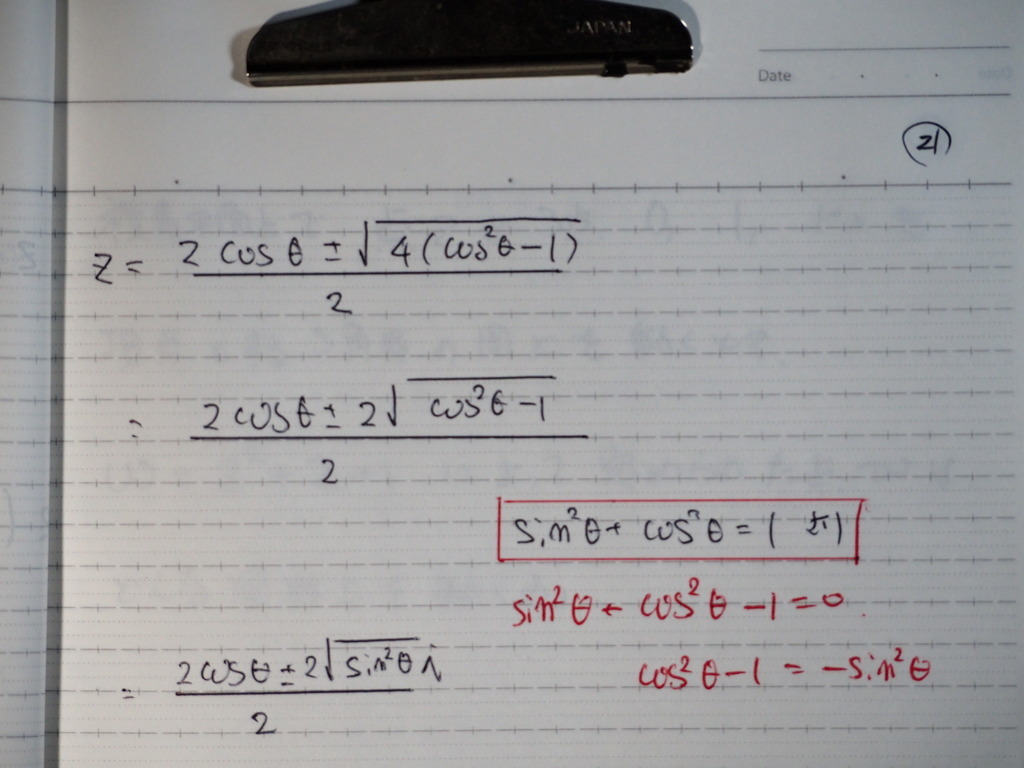 JAPAN
Date
21
z = \frac{2 cos θ ± \sqrt{4(cos²θ-1)}}{2}
= \frac{2 cos θ ± 2\sqrt{cos²θ-1}}{2}
sin²θ + cos²θ = 1 より
sin²θ + cos²θ - 1 = 0.
cos²θ - 1 = -sin²θ
= \frac{2 cos θ ± 2\sqrt{sin²θ} i}{2}